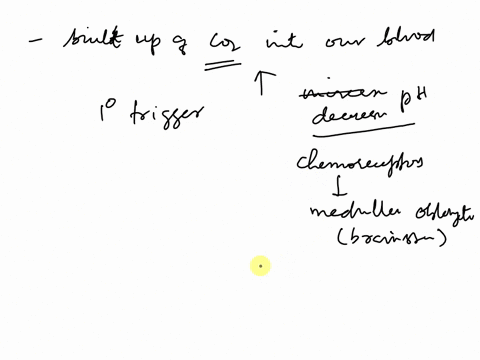 - built up of CO2 into our blood
1° trigger
decrease pH
chemoreceptors
↓
medulla oblongata
(brainstem)